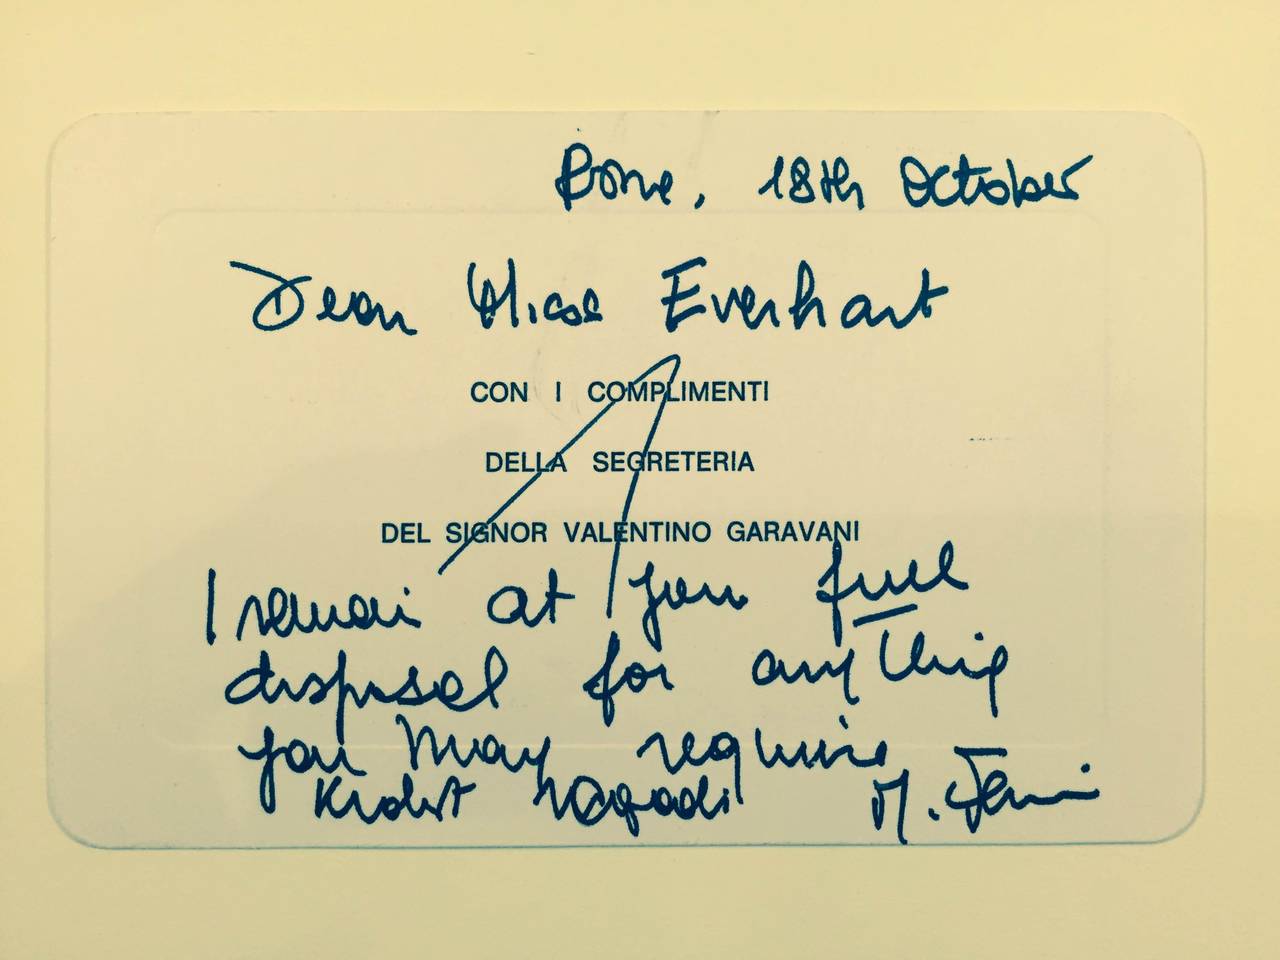 Rome, 18th October
Dear Miss Everhart
CON I COMPLIMENTI
DELLA SEGRETERIA
DEL SIGNOR VALENTINO GARAVANI
I remain at your full
disposal for anything
you may require
Kindest regards M.